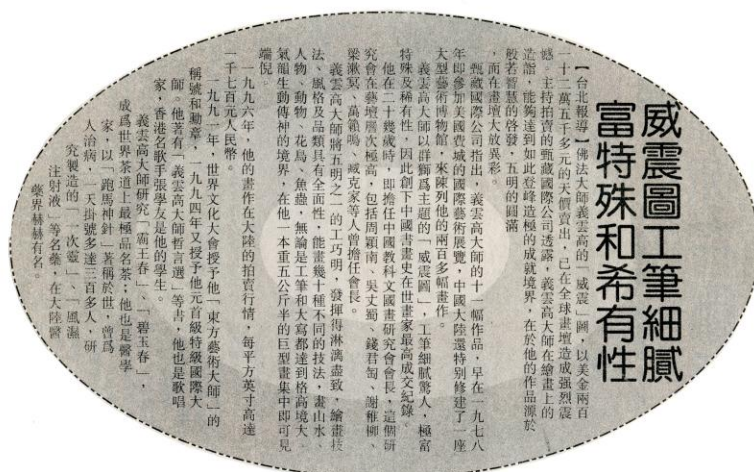 威震圖工筆細膩
富特殊和希有性
【台北報導】佛法大師義雲高的「威震」圖，以美金兩百
一十二萬五千多元的天價賣出，已在全球畫壇造成强烈震
憾。主持拍賣的甄藏國際公司透露，義雲高大師在繪畫上的
造詣，能夠達到如此登峰造極的成就境界，在於他的作品源於
般若智慧的啓發，五明的圓滿
，而在畫壇大放異彩。
甄藏國際公司指出，義雲高大師的十一幅作品，早在一九七八
年即參加美國費城的國際藝術展覽，中國大陸還特別修建了一座
大型藝術博物館，來陳列他的兩百多幅畫作。
義雲高大師以群獅爲主題的「威震圖」，工筆細膩驚人，極富
特殊及稀有性，因此創下中國書畫史在世畫家最高成交紀錄。
他在二十幾歲時，即擔任中國教科文國畫研究會會長，這個研
究會在藝壇層次極高，包括周穎南、吳丈蜀、錢君匋、謝稚柳、
梁漱冥、萬籟鳴、臧克家等人曾擔任會長。
義雲高大師將五明之一的工巧明，發揮得淋漓盡致，繪畫技
法、風格及品類具有全面性，能畫幾十種不同的技法，畫山水、
人物、動物、花鳥、魚蟲，無論是工筆和大寫都達到格高境大、
氣韻生動傳神的境界，在他一本重五公斤半的巨型畫集中即可見
端倪。
一九九六年，他的畫作在大陸的拍賣行情，每平方英寸高達
一千七百元人民幣。
一九九一年，世界文化大會授予他「東方藝術大師」的
稱號和勳章，一九九四年又授予他元首級特級國際大
師。他著有「義雲高大師哲言選」等書，他也是歌唱
家，香港名歌手張學友是他的學生。
義雲高大師研究「霸王春」、「碧玉春」，
成爲世界茶道上最極品名茶；他也是醫學
家，以「跑馬神針」著稱於世，曾爲
人治病，一天掛號多達三百多人，研
究製造的「一次靈」、「風濕
注射液」等名藥，在大陸醫
藥界赫赫有名。